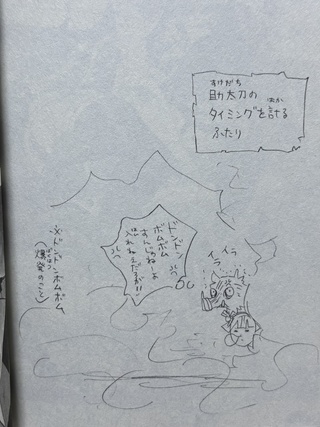 助太刀の
タイミングを計る
ふたり
ドンドン
ボムボム
すんじゃねーよ
入れねえだろが!!
イラ
イラ
イラ
※ドンドンボムボム
(爆発のこと)